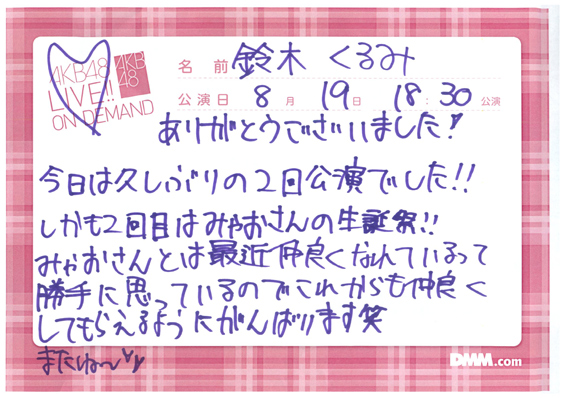 AKB48
LIVE!!
ON DEMAND
AKB
48
名 前 鈴木 くるみ
公演日 8月 19日 18:30 公演
ありがとうございました!
今日は久しぶりの2回公演でした!!
しかも2回目はみゃおさんの生誕祭!!
みゃおさんとは最近仲良くなれているって
勝手に思っているのでこれからも仲良く
してもらえるようにがんばります笑
またね〜
DMM.com